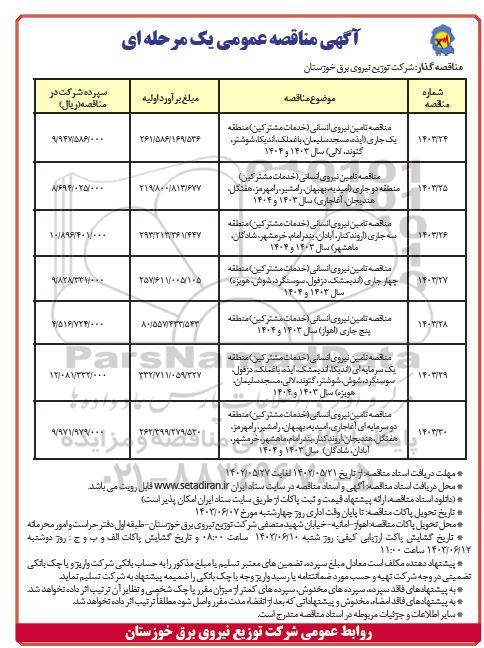 آگهی مناقصه عمومی یک مرحله ای
مناقصه گذار: شرکت توزیع نیروی برق خوزستان
شماره مناقصه
موضوع مناقصه
مبلغ برآورد اولیه
سپرده شرکت در مناقصه(ریال)
۱۴۰۳/۲۴
مناقصه تامین نیروی انسانی (خدمات مشترکین) منطقه
یک جاری (ایذه، مسجدسلیمان، باغملک، اندیکا، شوشتر،
گتوند، لالی) سال ۱۴۰۳ و ۱۴۰۴
۲۶۱/۵۸۶/۱۶۹/۵۳۶
۹/۹۴۷/۵۸۶/۰۰۰
۱۴۰۳/۲۵
مناقصه تامین نیروی انسانی (خدمات مشترکین)
منطقه دو جاری (امیدیه، بهبهان، رامشیر، رامهرمز، هفتگل،
هندیجان، آغاجاری) سال ۱۴۰۳ و ۱۴۰۴
۲۱۹/۸۰۰/۸۱۳/۶۷۷
۸/۶۹۴/۰۲۵/۰۰۰
۱۴۰۳/۲۶
مناقصه تامین نیروی انسانی (خدمات مشترکین) منطقه
سه جاری (اروندکنار، آبادان، بندرامام، خرمشهر، شادگان،
ماهشهر) سال ۱۴۰۳ و ۱۴۰۴
۲۹۳/۲۱۳/۳۶۱/۴۴۷
۱۰/۸۹۶/۴۰۱/۰۰۰
۱۴۰۳/۲۷
مناقصه تامین نیروی انسانی (خدمات مشترکین) منطقه
چهار جاری (اندیمشک، دزفول، سوسنگرد، شوش، هویزه)
سال ۱۴۰۳ و ۱۴۰۴
۲۵۷/۶۱۱/۰۰۵/۱۰۵
۹/۸۲۸/۳۳۱/۰۰۰
۱۴۰۳/۲۸
مناقصه تامین نیروی انسانی (خدمات مشترکین) منطقه
پنج جاری (اهواز) سال ۱۴۰۳ و ۱۴۰۴
۸۰/۵۵۷/۴۳۳/۵۴۳
۴/۵۱۶/۷۲۴/۰۰۰
۱۴۰۳/۲۹
مناقصه تامین نیروی انسانی (خدمات مشترکین) منطقه
یک سرمایه ای (اندیکا، اندیمشک، ایذه، باغملک، دزفول،
سوسنگرد، شوش، شوشتر، گتوند، لالی، مسجدسلیمان،
هویزه) سال ۱۴۰۳ و ۱۴۰۴
۳۳۲/۷۱۱/۰۵۹/۳۲۷
۱۲/۰۸۱/۳۳۲/۰۰۰
۱۴۰۳/۳۰
مناقصه تامین نیروی انسانی (خدمات مشترکین) منطقه
دو سرمایه ای (آغاجاری، امیدیه، بهبهان، رامشیر، رامهرمز،
هفتگل، هندیجان، اروندکنار، بندرامام، ماهشهر، خرمشهر،
آبادان، شادگان) سال ۱۴۰۳ و ۱۴۰۴
۲۶۲/۳۹۹/۲۷۹/۵۲۰
۹/۹۷۱/۹۷۹/۰۰۰
* مهلت دریافت اسناد مناقصه: از تاریخ ۱۴۰۳/۰۵/۲۱ لغایت ۱۴۰۳/۰۵/۲۷
* محل دریافت اسناد مناقصه: آگهی و اسناد مناقصه در سایت ستاد ایران www.setadiran.ir قابل رویت می باشد.
* (دانلود اسناد مناقصه، ارائه پیشنهاد قیمت و ثبت پاکات از طریق سایت ستاد ایران امکان پذیر است)
* تاریخ تحویل پاکات مناقصه: تا پایان وقت اداری روز چهارشنبه مورخ ۱۴۰۳/۰۶/۰۷
* محل تحویل پاکات مناقصه: اهواز-امانیه-خیابان شهید منصفی شرکت توزیع نیروی برق خوزستان-طبقه اول دفتر حراست و امور محرمانه
* تاریخ گشایش پاکات ارزیابی کیفی: روز شنبه ۱۴۰۳/۰۶/۱۰ ساعت ۰۸:۰۰ و تاریخ گشایش پاکات الف و ب و ج : روز دوشنبه
۱۴۰۳/۰۶/۱۲ ساعت ۱۱:۰۰
* پیشنهاد دهنده مکلف است معادل مبلغ سپرده، تضمین های معتبر تسلیم یا مبلغ مذکور را به حساب بانکی شرکت واریز و یا چک بانکی
تضمینی در وجه شرکت تهیه و حسب مورد ضمانتنامه یا رسید واریز وجه یا چک بانکی را ضمیمه پیشنهاد به شرکت تسلیم نماید.
* به پیشنهادهای فاقد سپرده، سپرده های مخدوش، سپرده های کمتر از میزان مقرر یا چک شخصی و نظایر آن ترتیب اثر داده نخواهد شد.
* به پیشنهادهای فاقد امضاء، مخدوش و پیشنهاداتی که بعد از انقضاء مدت مقرر واصل شود مطلقاً ترتیب اثر داده نخواهد شد.
* سایر اطلاعات و جزئیات مربوطه در اسناد مناقصه مندرج است.
روابط عمومی شرکت توزیع نیروی برق خوزستان